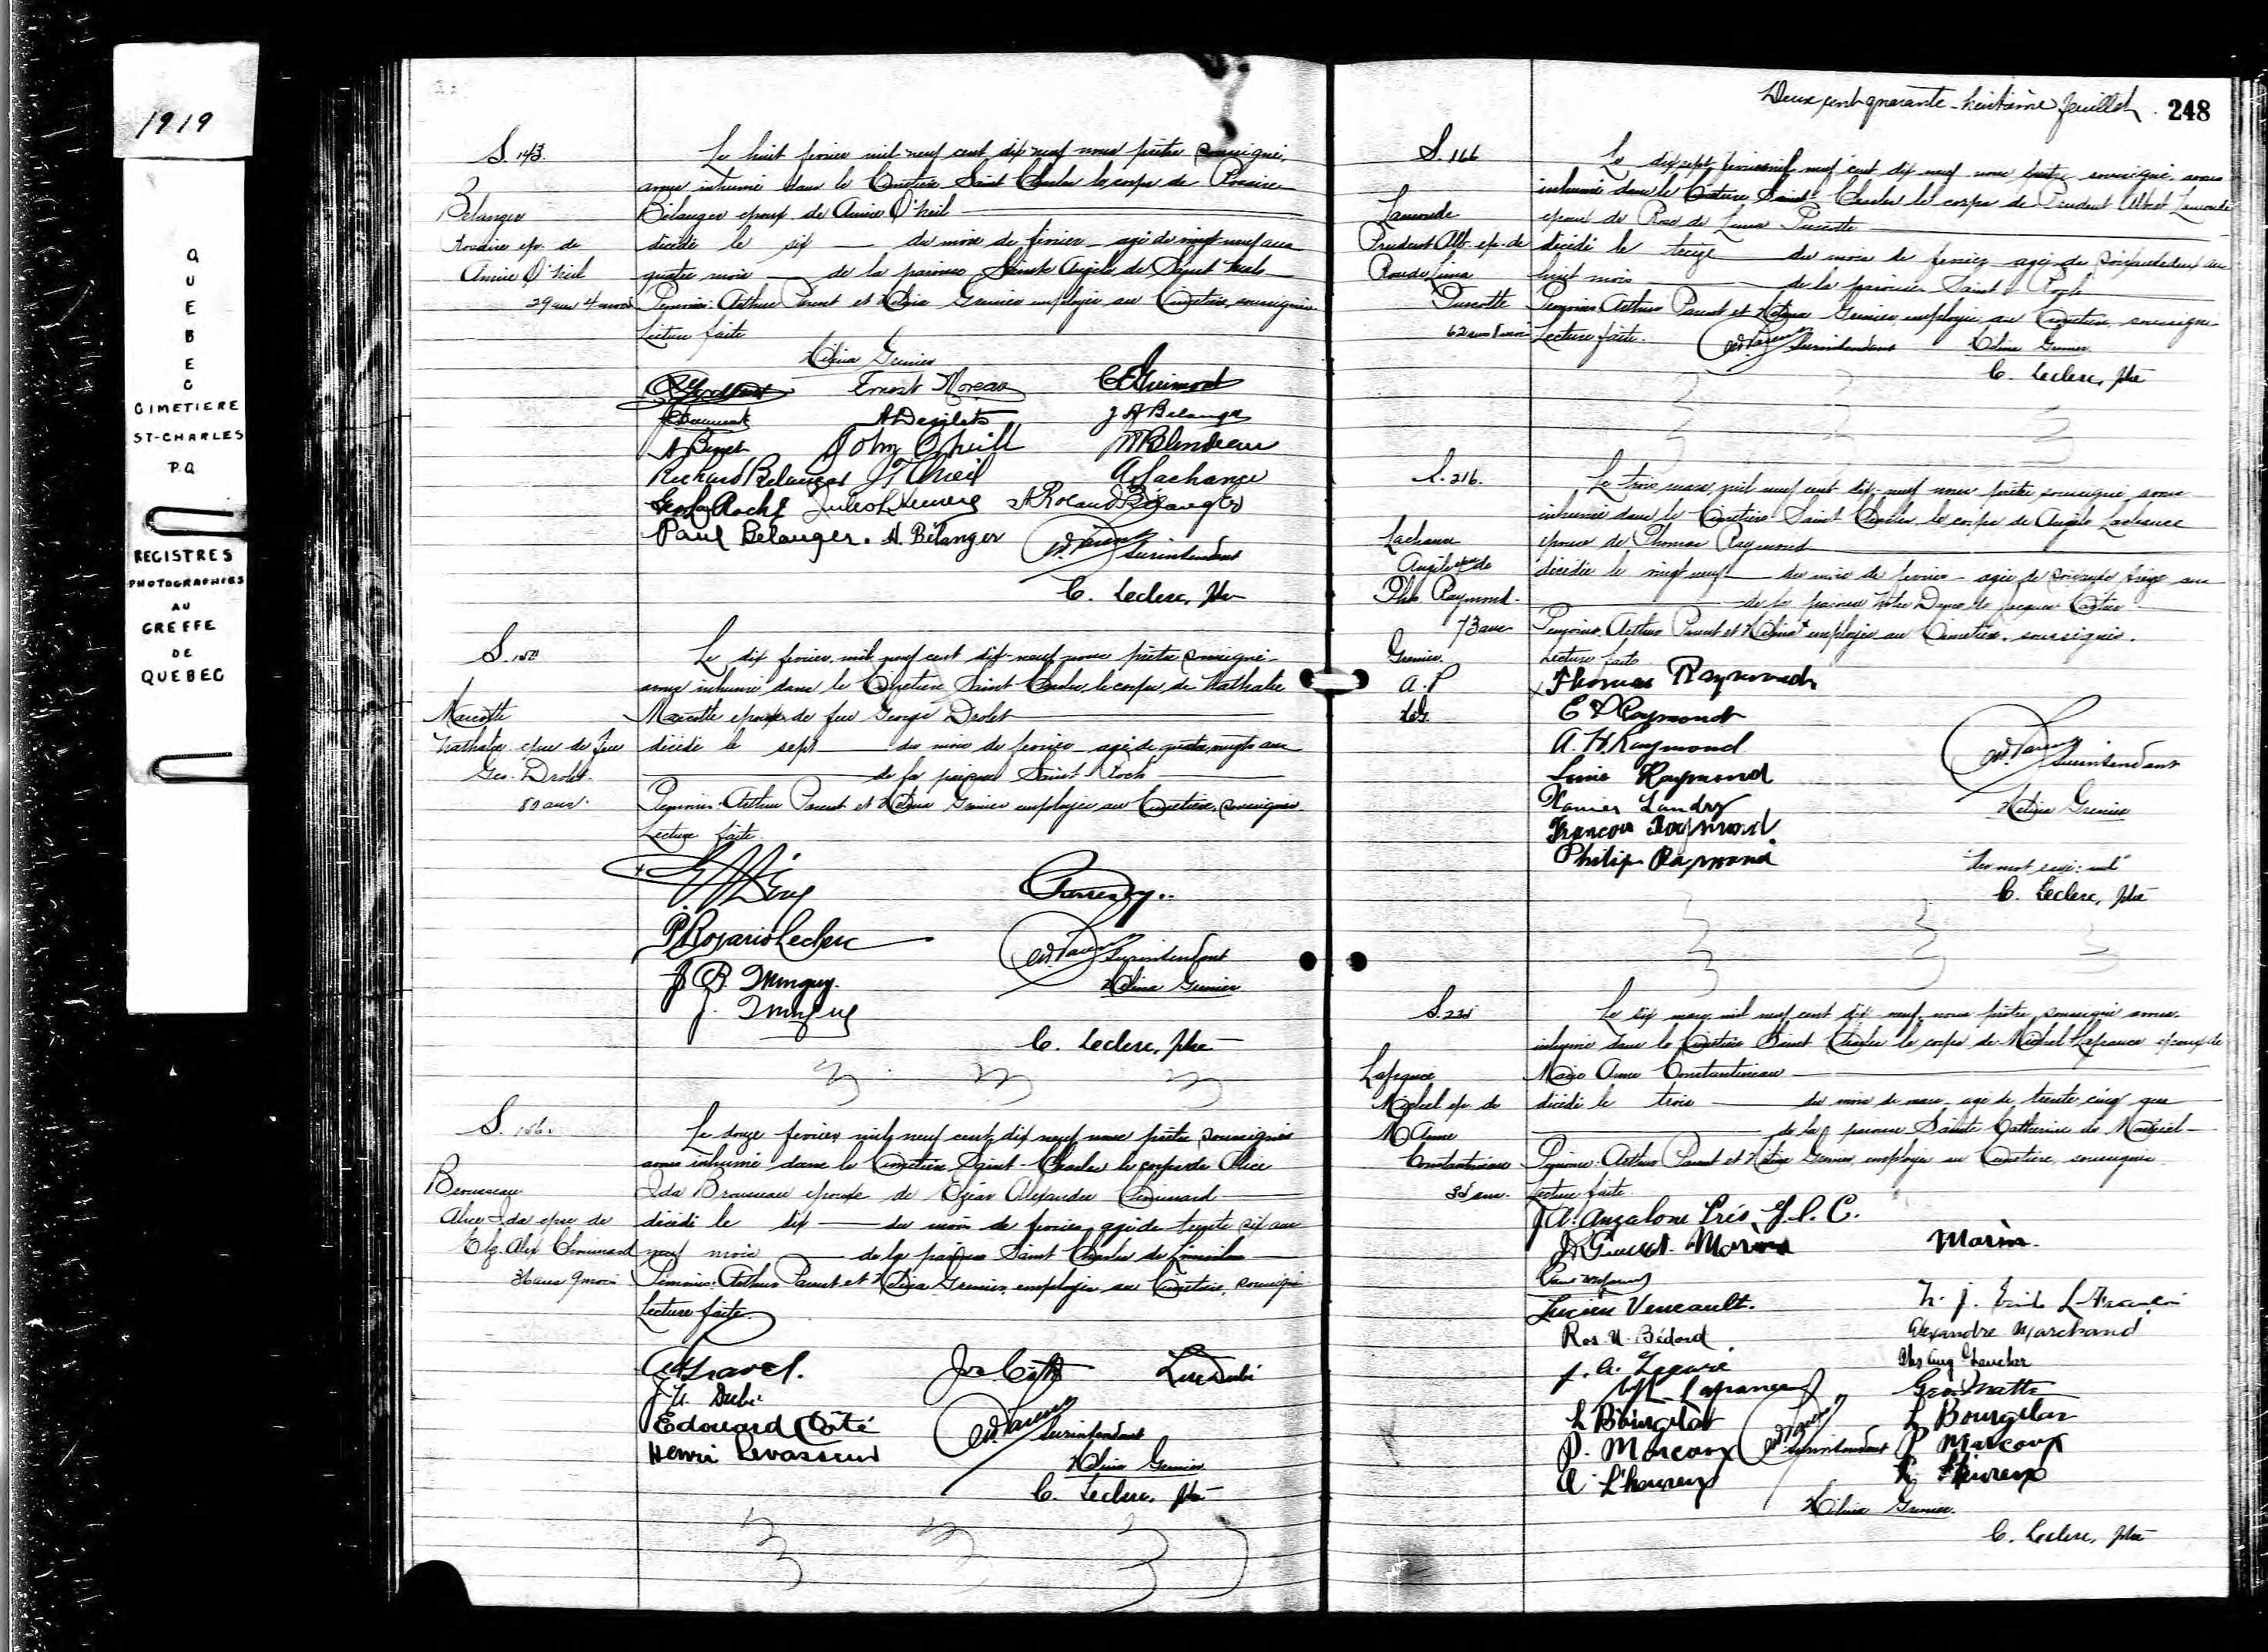 1919
QUEBEC
CIMETIERE
ST-CHARLES
P.Q
REGISTRES
PHOTOGRAPHIES
AU
GREFFE
DE
QUEBEC
S. 143.
Belanger
Rosaire ep. de
Annie O'Neil
29 ans 4 mois
Le huit fevrier mil neuf cent dix neuf nous prêtre soussigné,
avons inhumé dans le Cimetière Saint Charles le corps de Rosaire
Bélanger epoux de Annie O'Neil
décédé le six du mois de fevrier agé de vingt neuf ans
quatre mois de la paroisse Sainte Angèle de Saint Malo
Temoins: Arthur Parent et Grenier employés au Cimetière, soussignés.
Lecture faite
Grenier
Ernest Moreau
A Desilets
J A Belanger
John O'Neill
M Blondeau
Richard Belanger
A Lachance
Roland Belanger
Paul Bélanger. A. Bélanger
Surintendant
C. Leclerc, ptre
S. 150
Marcotte
Nathalie epse de feu
Geo. Drolet.
80 ans.
Le dix fevrier mil neuf cent dix-neuf nous prêtre soussigné
avons inhumé dans le Cimetière Saint Charles, le corps de Nathalie
Marcotte epouse de feu George Drolet
décédé le sept du mois de fevrier agé de quatre vingts ans
de la paroisse Saint Roch
Temoins: Arthur Parent et Grenier employés au Cimetière, soussignés.
Lecture faite.
P Rosario Leclerc
Surintendant
J B Minguy.
Grenier
J. Minguy
C. Leclerc, ptre
S. 156.
Brousseau
Alice Ida epse de
Elz. Alex Chouinard
36 ans 9 mois
Le douze fevrier mil neuf cent dix neuf nous prêtre soussigné
avons inhumé dans le Cimetière Saint-Charles le corps de Alice
Ida Brousseau epouse de Elzéar Alexandre Chouinard
décédé le dix du mois de fevrier agé de trente six ans
neuf mois de la paroisse Saint Charles de Limoilou
Temoins: Arthur Parent et Grenier, employés au Cimetière, soussignés
Lecture faite.
Gravel.
Luc Dubé
Edouard Côté
Surintendant
Henri Levasseur
Grenier
C. Leclerc, ptre
Deux cent quarante-huitième feuillet. 248
S. 166
Lamonde
Prudent Alb. ep. de
Rose de Lima
Turcotte
62 ans 8 mois
Le dix sept fevrier mil neuf cent dix neuf nous prêtre soussigné, avons
inhumé dans le Cimetière Saint Charles le corps de Prudent Albert Lamonde
epoux de Rose de Lima Turcotte
décédé le treize du mois de fevrier agé de soixante deux ans
huit mois de la paroisse Saint Roch
Temoins Arthur Parent et Grenier, employés au Cimetière, soussignés
Lecture faite.
Surintendant
Grenier.
C. Leclerc, ptre
S. 216.
Lachance
Angèle epse de
Ths Raymond.
73 ans
Grenier.
A. P
Le trois mars mil neuf cent dix-neuf nous prêtre soussigné avons
inhumé dans le Cimetière Saint Charles, le corps de Angèle Lachance
epouse de Thomas Raymond
décédée le vingt neuf du mois de fevrier agée de soixante treize ans
de la paroisse Notre Dame de Jacques Cartier
Temoins, Arthur Parent et employés au Cimetière, soussignés.
Lecture faite
Thomas Raymond
E P Raymond
A. H. Raymond
Louis Raymond
Xavier Landry
François Raymond
Philip Raymond
Surintendant
Grenier
C. Leclerc, ptre
S. 225
Lafrance
Michel ep. de
M Anne
Constantineau
35 ans.
Le six mars mil neuf cent dix neuf, nous prêtre, soussigné avons
inhumé dans le Cimetière Saint Charles le corps de Michel Lafrance epoux de
Marie Anne Constantineau
décédé le trois du mois de mars agé de trente cinq ans
de la paroisse Sainte Catherine de Montréal
Temoins: Arthur Parent et Grenier, employés au Cimetière, soussignés
Lecture faite
J. A. Anzalone Prés. J. L. C.
Marin.
Lucien Vencault.
Ros U. Bédard
Alexandre Marchand
Lafrance
Geo. Matte
L Bourgelas
L Bourgelas
P. Marcoux
Surintendant
P Marcoux
A L'heureux
L'heureux
Grenier.
C. Leclerc, ptre